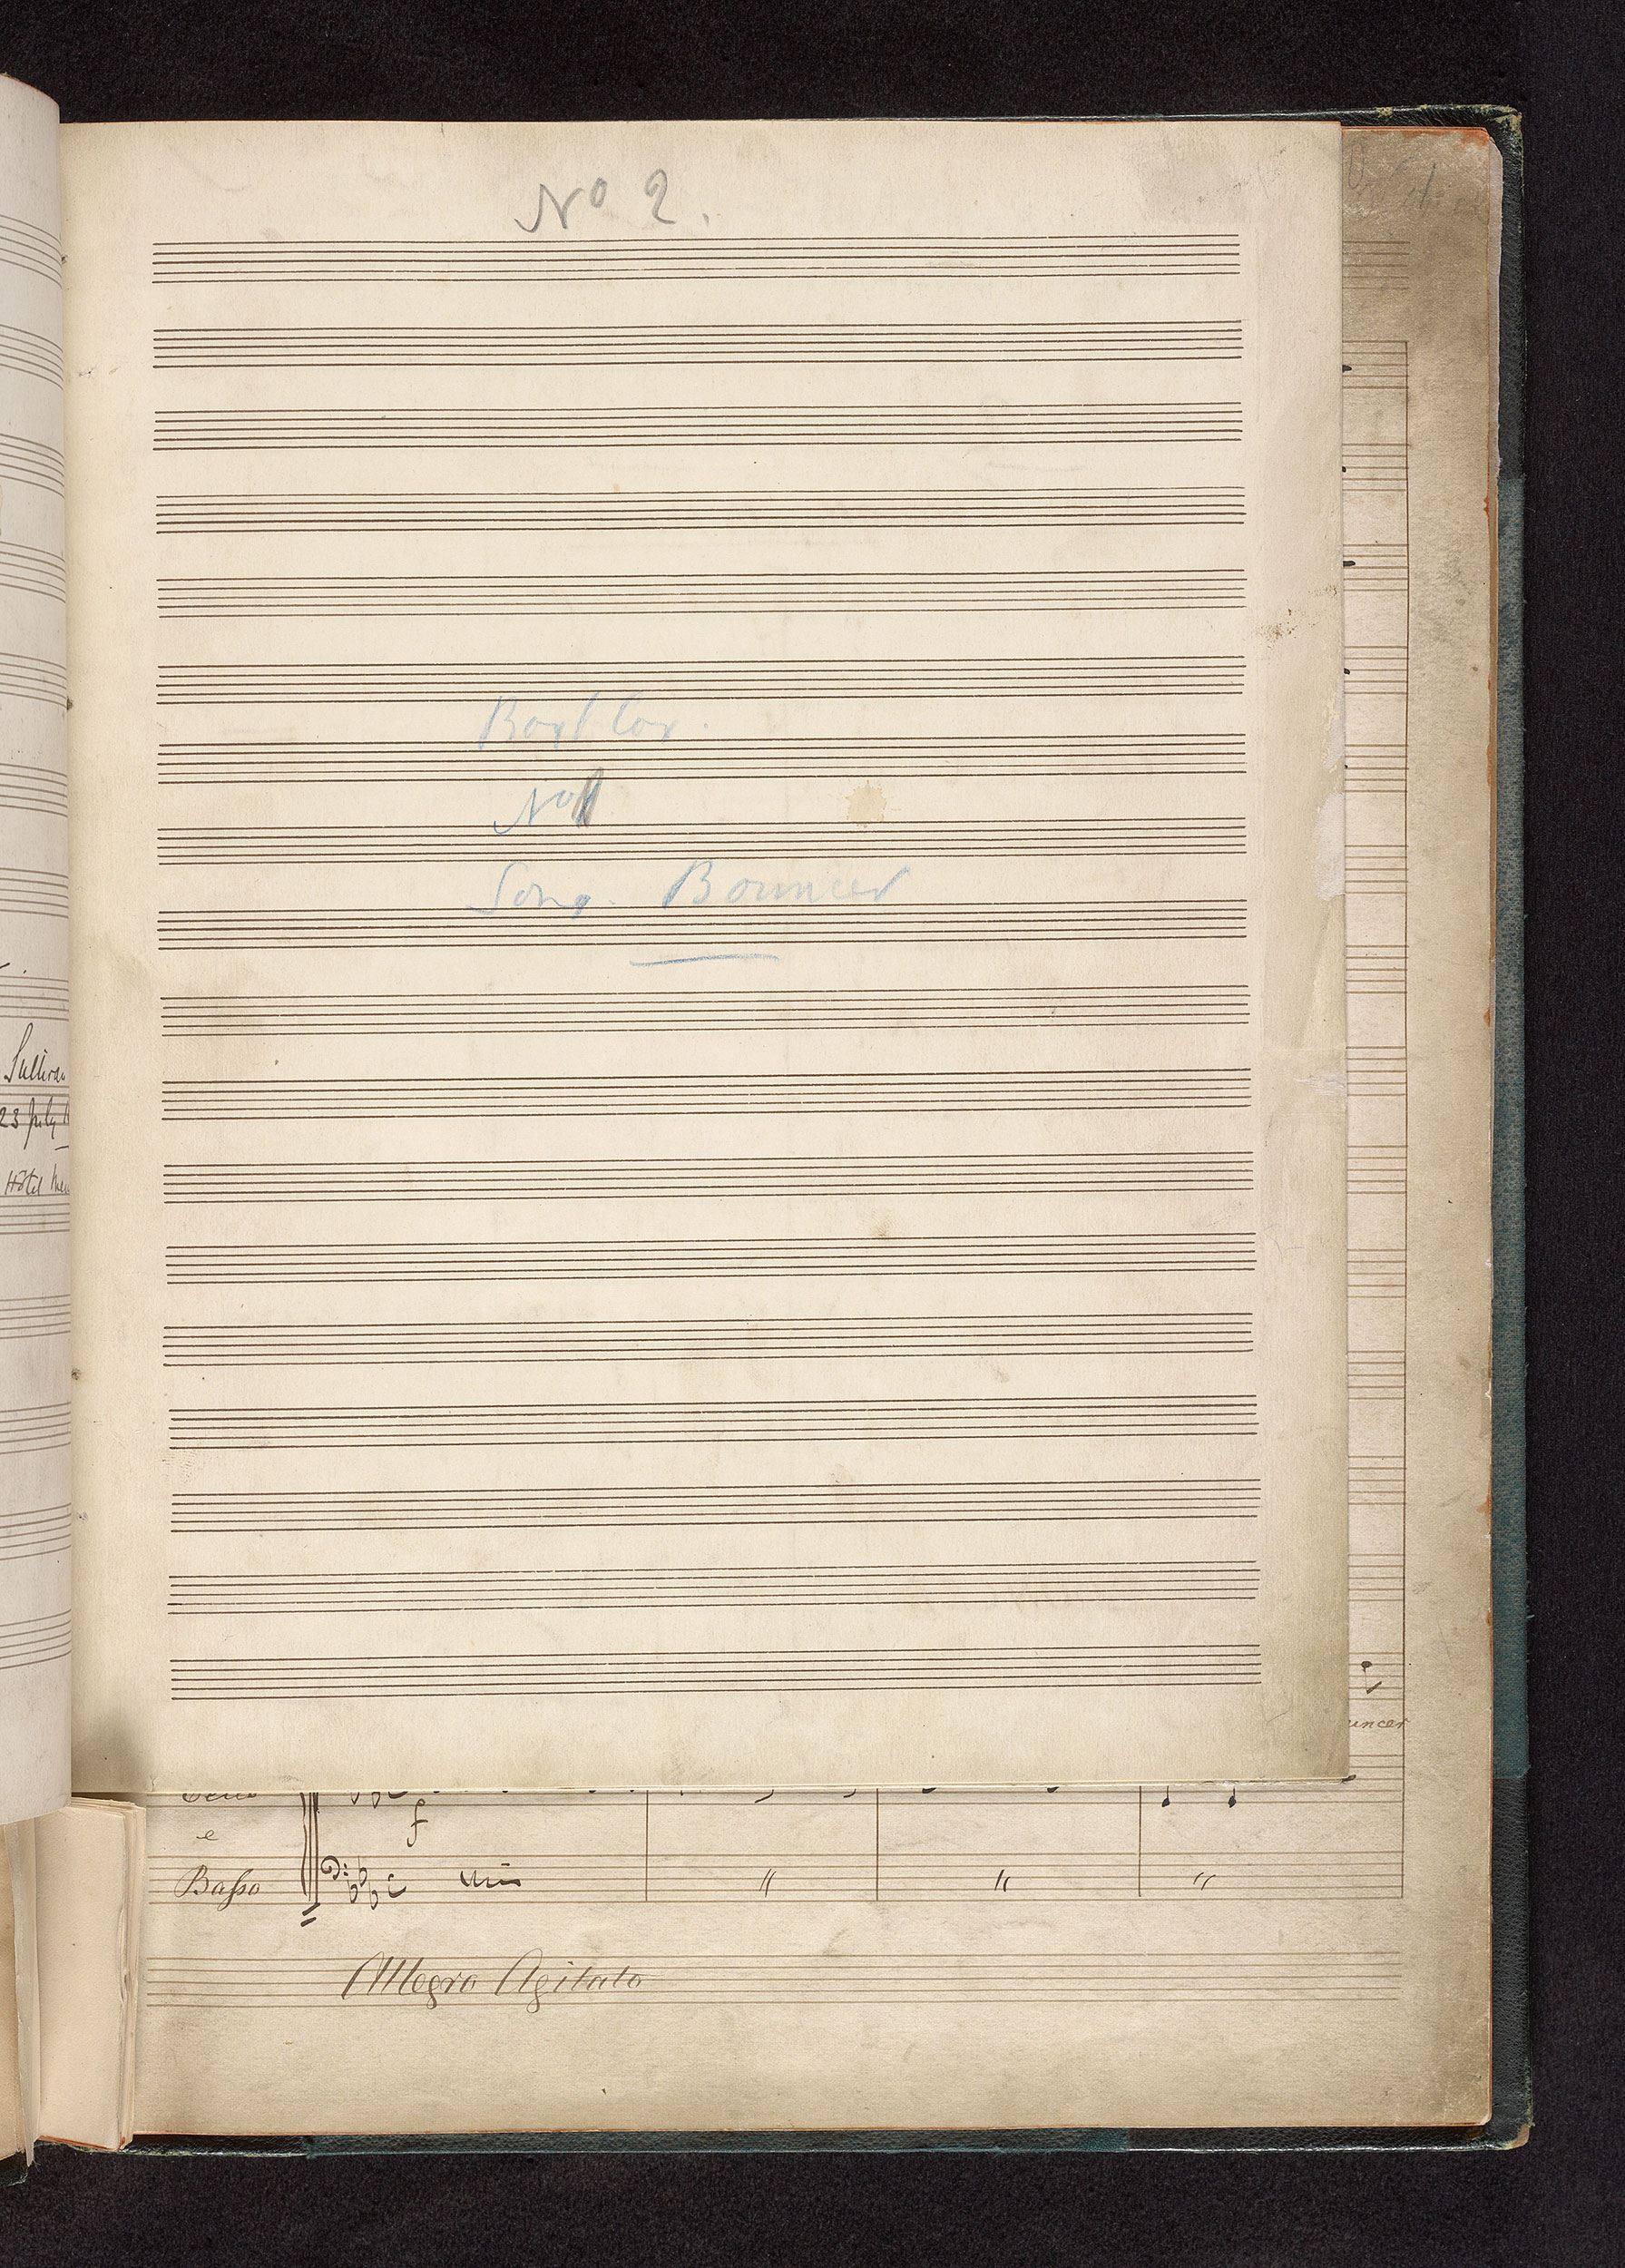 No 2.
Box & Cox.
No 1
Song. Bouncer
Sullivan
23 July
Hôtel
uncer
Cello
e
Basso
f
unis
Allegro Agitato